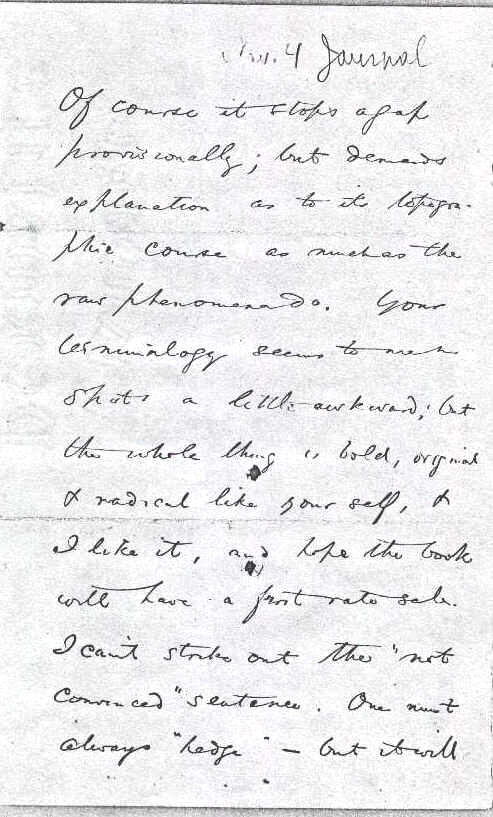 4 Journal
Of course it stops a gap
provisionally; but demands
explanation as to its topogra-
phic course as much as the
raw phenomena do. Your
terminology seems to me in
spots a little awkward; but
the whole thing is bold, original
& radical like your self, &
I like it, and hope the book
will have a first rate sale.
I can't strike out the "not
convinced" sentence. One must
always "hedge" – but it will